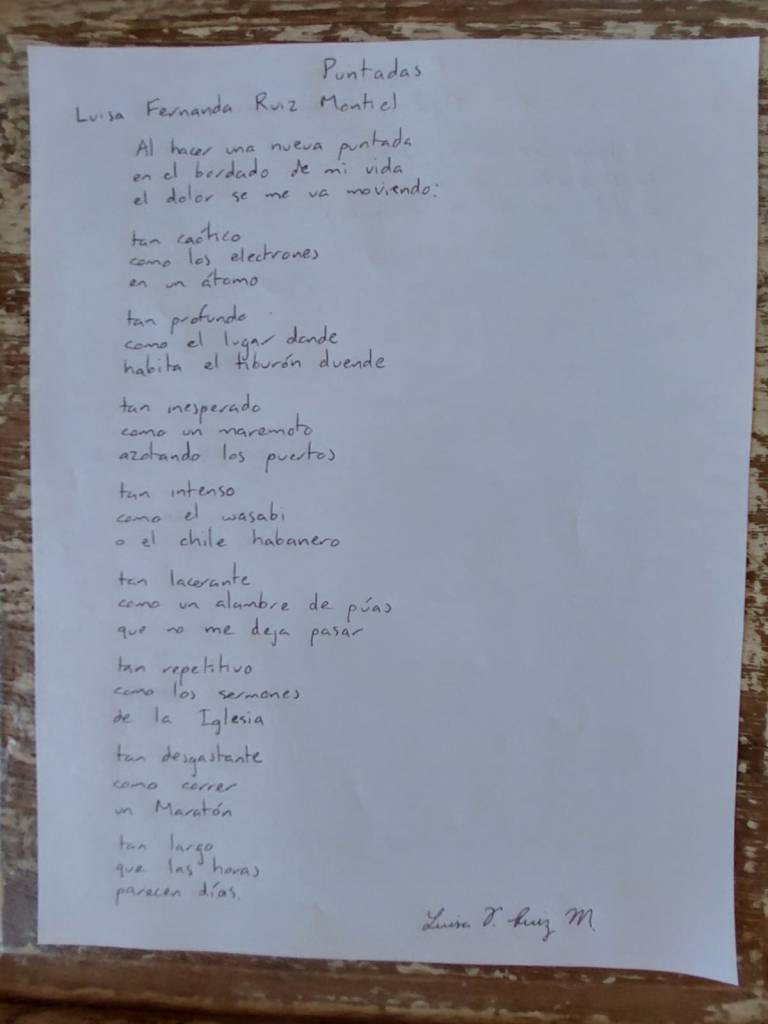 Puntadas
Luisa Fernanda Ruiz Montiel
Al hacer una nueva puntada
en el bordado de mi vida
el dolor se me va moviendo:
tan caótico
como los electrones
en un átomo
tan profundo
como el lugar donde
habita el tiburón duende
tan inesperado
como un maremoto
azotando los puertos
tan intenso
como el wasabi
o el chile habanero
tan lacerante
como un alambre de púas
que no me deja pasar
tan repetitivo
como los sermones
de la Iglesia
tan desgastante
como correr
un Maratón
tan largo
que las horas
parecen días.
Luisa F. Ruiz M.